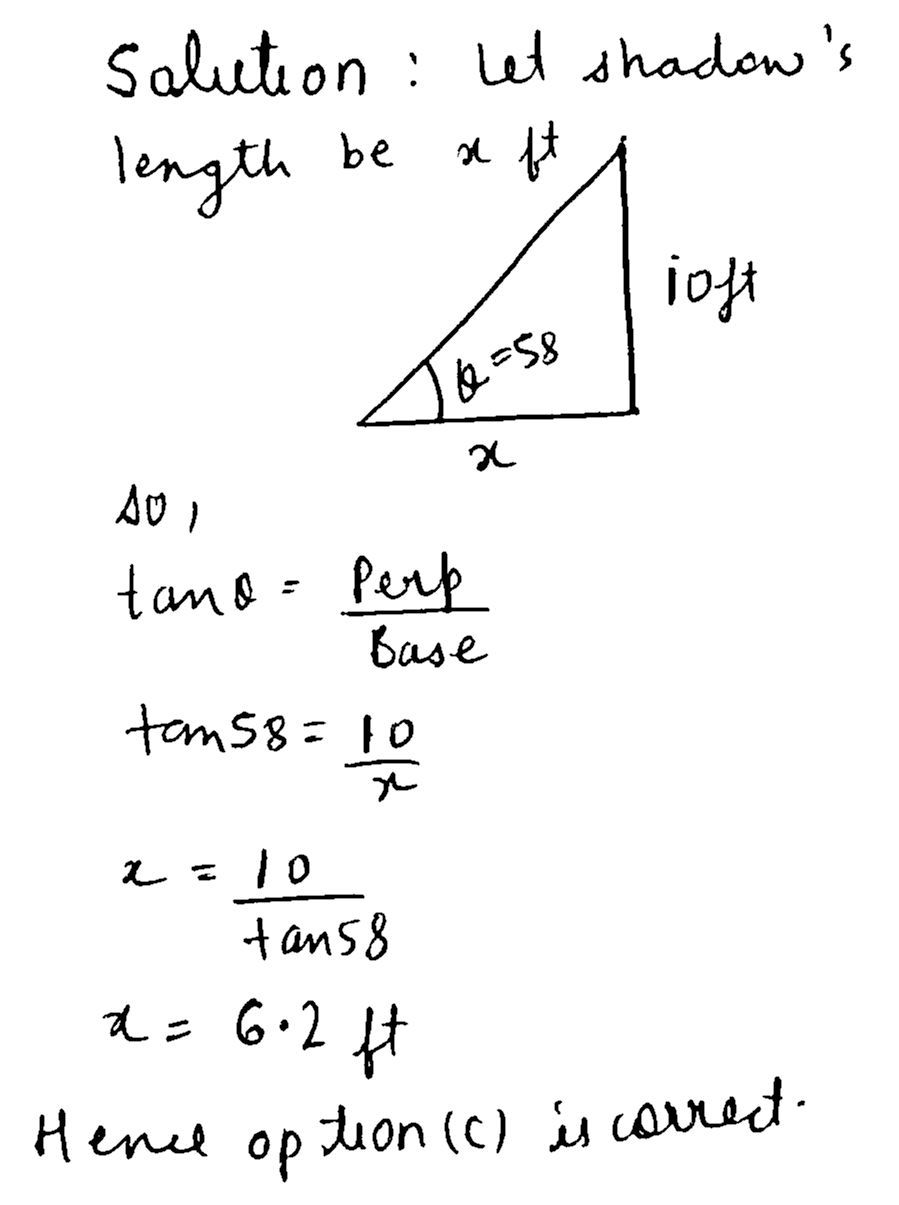 Solution : Let shadow's
length be x ft
10ft
θ=58
x
so,
tanθ = Perp
Base
tan58 = 10
x
x = 10
tan58
x = 6.2 ft
Hence option (c) is correct.